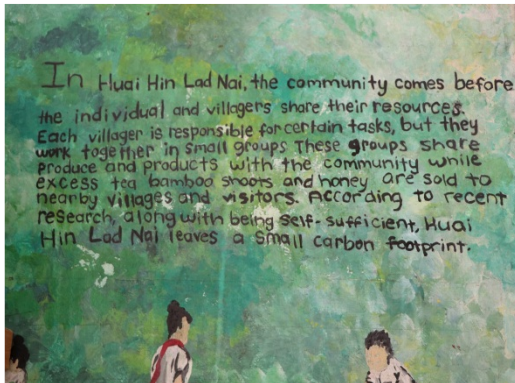 In Huai Hin Lad Nai, the community comes before
the individual and villagers share their resources.
Each villager is responsible for certain tasks, but they
work together in small groups These groups share
produce and products with the community while
excess tea bamboo shoots and honey are sold to
nearby villages and visitors. According to recent
research, along with being self-sufficient, Huai
Hin Lad Nai leaves a small carbon footprint.